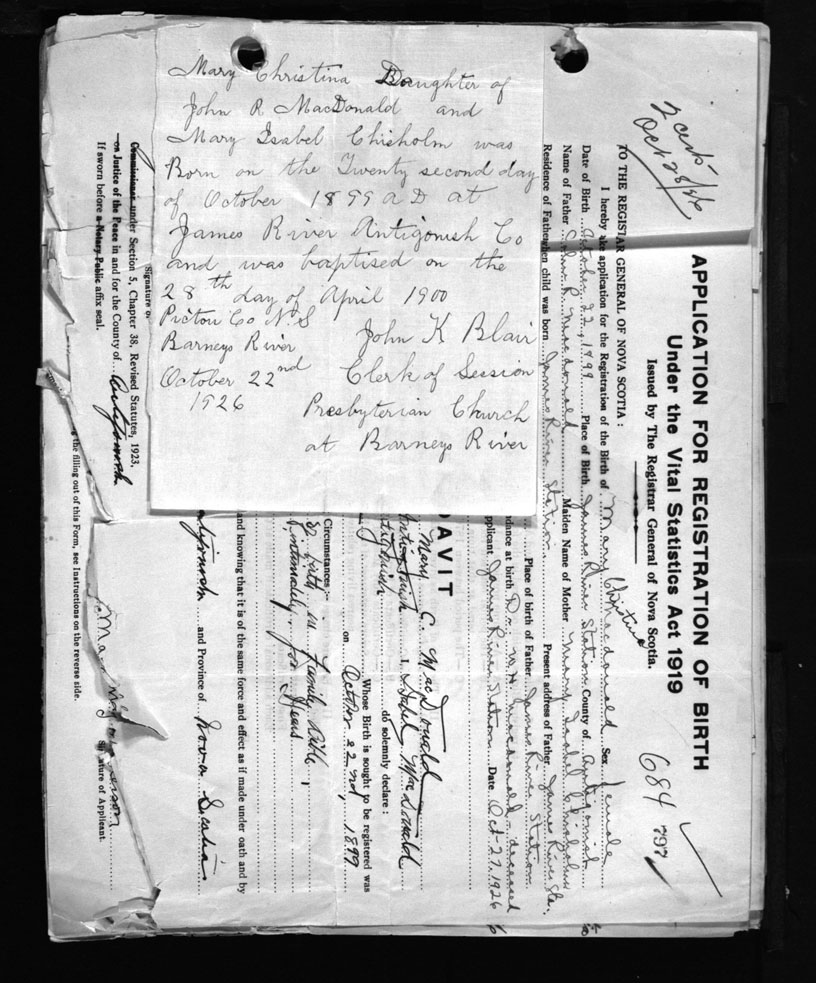 Mary Christina Daughter of
John R MacDonald and
Mary Isabel Chisholm was
Born on the Twenty second day
of October 1899 A D at
James River Antigonish Co
and was baptised on the
28th day of April 1900
Pictou Co N.S
Barneys River
October 22nd
1926
John K Blair
Clerk of Session
Presbyterian Church
at Barneys River
2 certs
Oct 28/26
APPLICATION FOR REGISTRATION OF BIRTH
Under the Vital Statistics Act 1919
Issued by The Registrar General of Nova Scotia.
684
797
TO THE REGISTRAR GENERAL OF NOVA SCOTIA:
I hereby make application for the Registration of the Birth of Mary Christina Macdonald Sex female
Date of Birth October 22, 1899 Place of Birth James River Station County of Antigonish
Name of Father John R. Macdonald Maiden Name of Mother Mary Isabel Chisholm
Residence of Father when child was born James River Station. Present address of Father James River Sta.
Place of birth of Father James River Station.
dance at birth Dr. W. H. Macdonald - deceased
pplicant James River Station Date Oct-27, 1926
DAVIT
Mary C. MacDonald
Antigonish I, Isabel MacDonald
Antigonish do solemnly declare:
Whose Birth is sought to be registered was
on October 22nd, 1899
Circumstances:-
of birth in family bible,
intimately, for years
and knowing that it is of the same force and effect as if made under oath and by
and Province of Nova Scotia
Signature of Applicant.
Signature o
Commissioner under Section 5, Chapter 38, Revised Statutes, 1923,
or Justice of the Peace in and for the County of Antigonish
If sworn before a Notary Public affix seal.
the filling out of this Form, see Instructions on the reverse side.